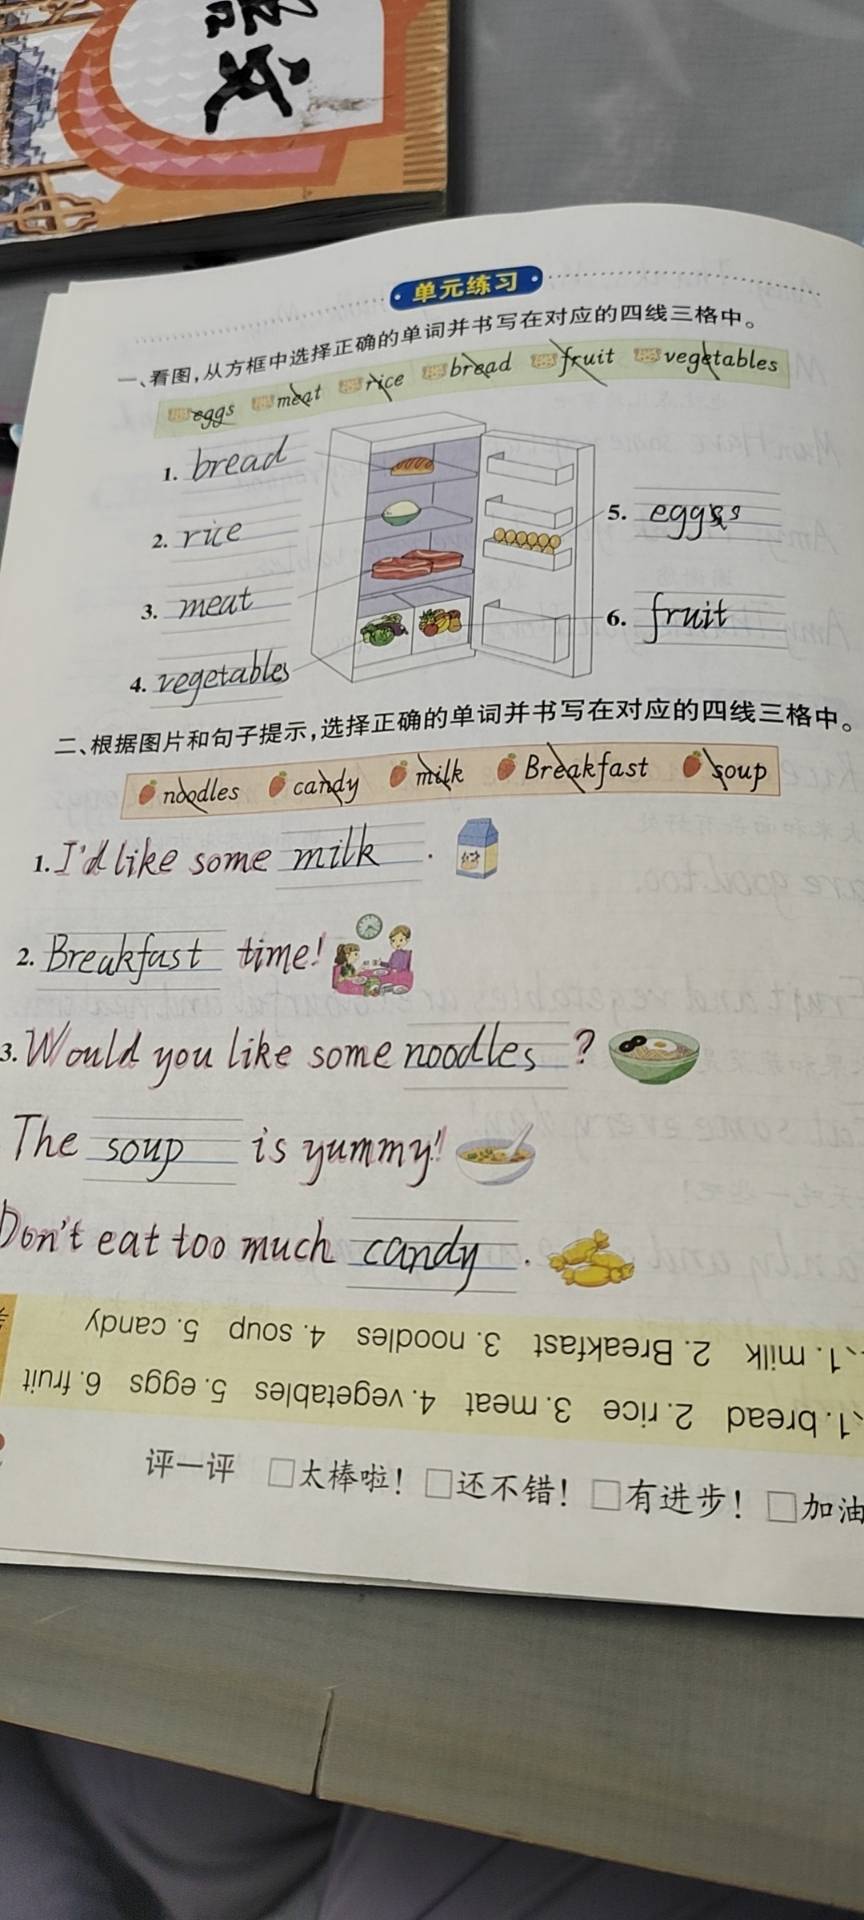 语文
单元练习
一、看图，从方框中选择正确的单词并书写在对应的四线三格中。
eggs meat rice bread fruit vegetables
1. bread
2. rice
3. meat
4. vegetables
5. eggs
6. fruit
二、根据图片和句子提示，选择正确的单词并书写在对应的四线三格中。
noodles candy milk Breakfast soup
1. I'd like some milk .
2. Breakfast time!
3. Would you like some noodles ?
The soup is yummy!
Don't eat too much candy .
、1. milk 2. Breakfast 3. noodles 4. soup 5. candy
、1. bread 2. rice 3. meat 4. vegetables 5. eggs 6. fruit
评一评 □太棒啦！ □还不错！ □有进步！ □加油